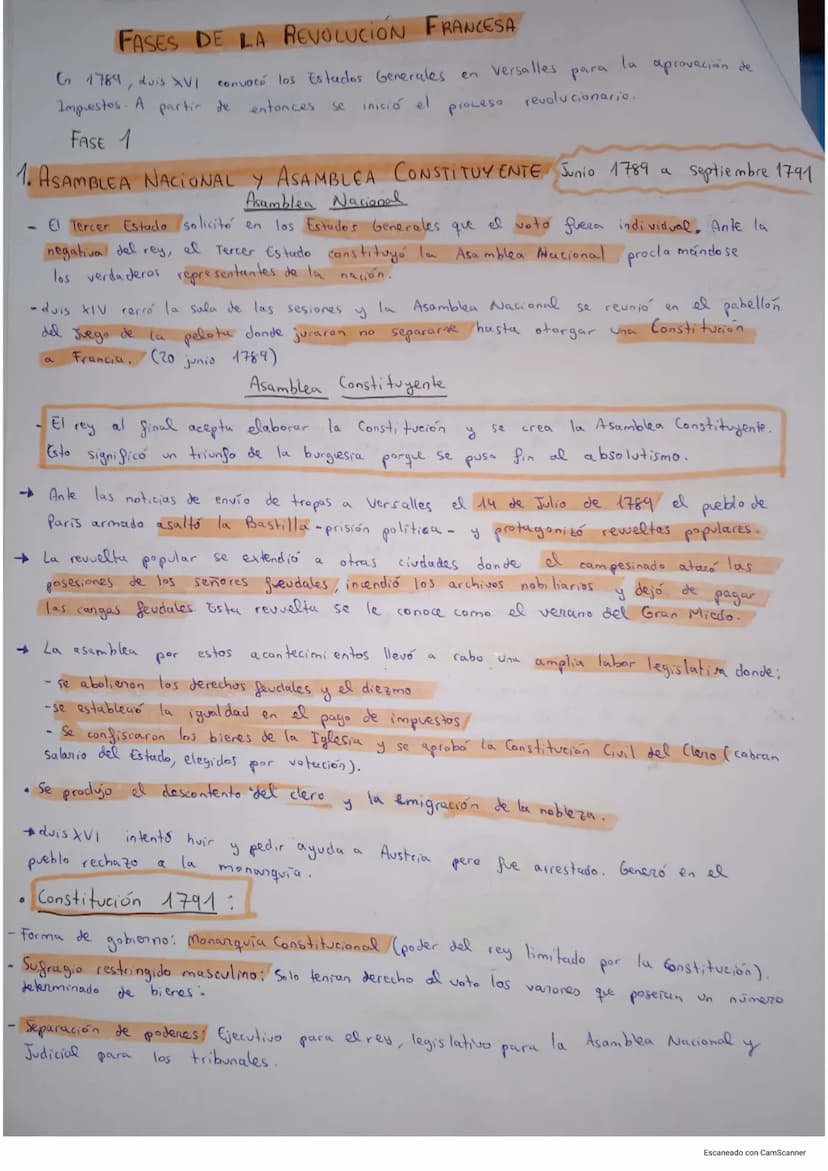 FASES DE LA REVOLUCIÓN FRANCESA
En 1789, Luis XVI convocó los Estados Generales en Versalles para la aprovación de
Impuestos. A partir de entonces se inició el proceso revolucionario.
FASE 1
1. ASAMBLEA NACIONAL Y ASAMBLEA CONSTITUYENTE Junio 1789 a septiembre 1791
Asamblea Nacional
- El Tercer Estado solicitó en los Estados Generales que el voto fuera individual. Ante la
negativa del rey, el Tercer Estado constituyó la Asamblea Nacional proclamándose
los verdaderos representantes de la nación.
- Luis XIV cerró la sala de las sesiones y la Asamblea Nacional se reunió en el pabellón
del Juego de la pelota donde juraron no separarse hasta otorgar una Constitución
a Francia. (20 junio 1789)
Asamblea Constituyente
- El rey al final acepta elaborar la Constitución y se crea la Asamblea Constituyente.
Esto significó un triunfo de la burguesia porque se puso fin al absolutismo.
→ Ante las noticias de envio de tropas a Versalles el 14 de Julio de 1789 el pueblo de
Paris armado asaltó la Bastilla - prisión política - y protagonizó revueltas populares.
→ La revuelta popular se extendió a otras ciudades donde el campesinado atacó las
posesiones de los señores feudales, incendió los archivos nobiliarios y dejó de pagar
las cargas feudales. Esta revuelta se le conoce como el verano del Gran Miedo.
→ La asamblea por estos acontecimientos llevó a cabo una amplia labor legislativa donde:
- se abolieron los derechos feudales y el diezmo
- se estableció la igualdad en el pago de impuestos
- Se confiscaron los bienes de la Iglesia y se aprobó la Constitución Civil del Clero (cobran
salario del Estado, elegidos por votación).
• Se produjo el descontento del clero y la emigración de la nobleza.
→ Luis XVI intentó huir y pedir ayuda a Austria pero fue arrestado. Generó en el
pueblo rechazo a la monarquía.
• Constitución 1791:
- Forma de gobierno: Monarquía Constitucional (poder del rey limitado por la Constitución).
- Sufragio restringido masculino: Solo tenian derecho al voto los varones que poseian un número
determinado de bienes.
- Separación de poderes: Ejecutivo para el rey, legislativo para la Asamblea Nacional y
Judicial para los tribunales.
Escaneado con CamScanner